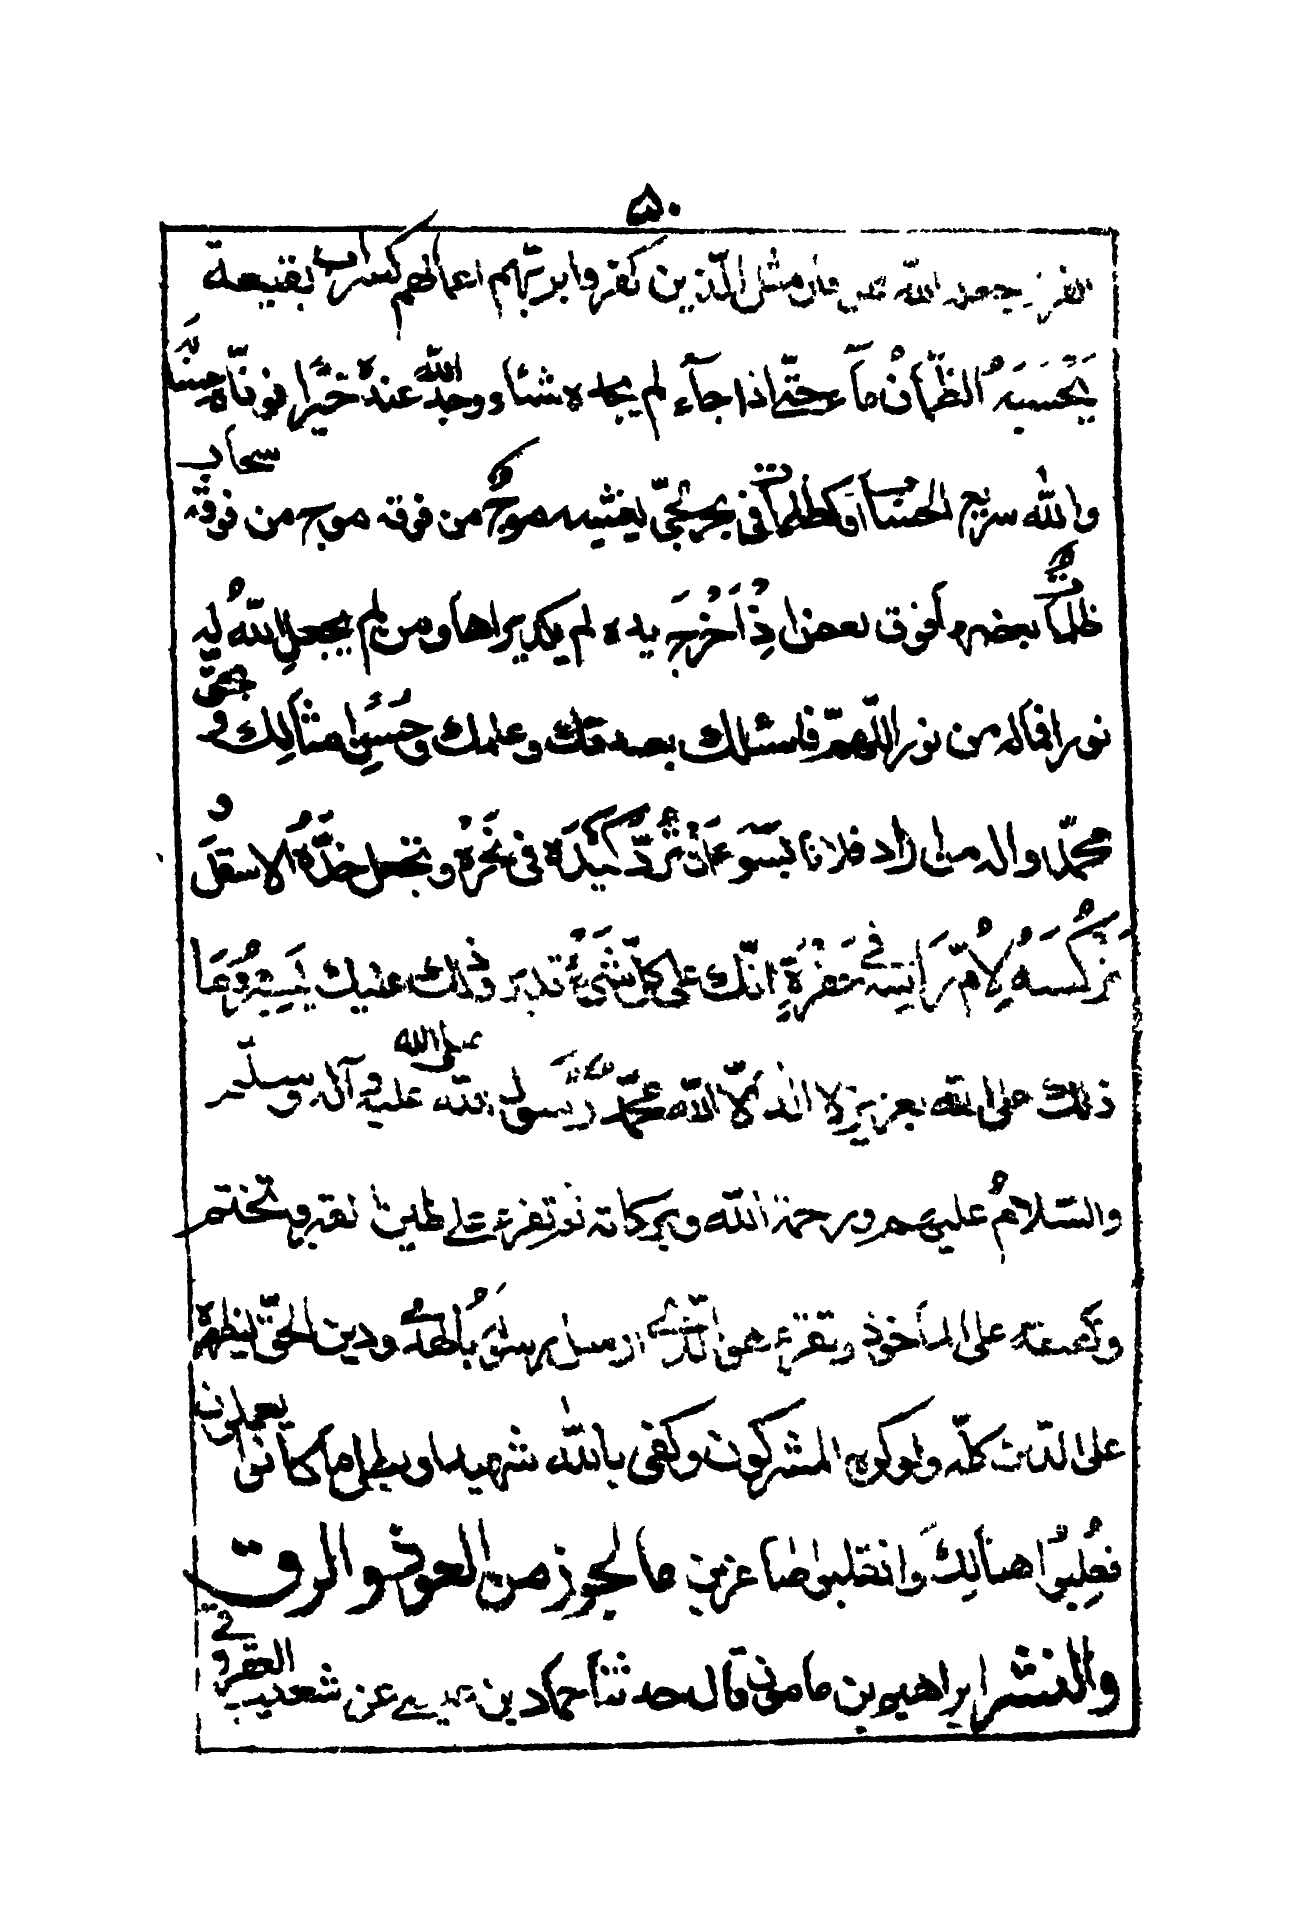 ۵۰
يجعل الله مثل الذين كفروا بربّهم اعمالهم كسراب بقيعة
يَحْسَبُهُ الظَّمْأنُ مآء حتّى اذا جآءه لم يجده شيئاء ووجد الله عنده خَيْرًا فوفّاه حِسَابَهُ
والله سريع الحساب او كظلمات فى بحر لجّىّ يغشيه موجٌ من فوقه موج من فوقه سحاب
ظلماتٌ بعضها فوق بعض اذا أَخْرَجَ يده لم يكد يراها ومن لم يجعلِ اللهُ له
نورا فماله من نور اللّهمّ فاسئلك بصدقك وعلمك وحُسْنِ امثالك وبحقّ
محمّد واله من اراد فلانا بسوء أنْ تَرُدَّ كَيْدَهُ فى نَحْرِهِ وتجعل خدَّهُ الاسفلَ و
تركسهُ لِأُمِّ رَأسه فى حفرة انّك على كلّ شَىْءٍ قدير وذلك عليك يسيرٌ وما
ذلك على الله بعزيز لا اله الّا الله محمّد رسول الله صلى الله عليه وآله وسلّم
والسّلامُ عليهم ورحمة الله وبركاته ثم تقرء على طين القبر وتختم
وتضعه على المأخوذ وتقرء هو الّذى ارسل رسولَهُ بالهدى ودين الحقّ ليظهره
على الدّين كلّه ولو كره المشركون وكفى بالله شهيدا وبطل ما كانوا يعملون
فغُلِبُوا هنالِكَ وانقلبوا صاغرين ما يجوز من العوذ والرق
والنشر ابراهيم بن مامون قال حدثنا حماد بن عيسى عن شعيب العقرقوفى